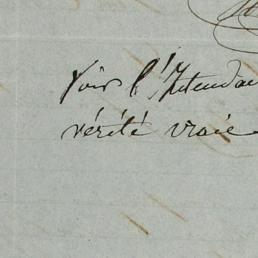 Voir l'Intendan
vérité vraie